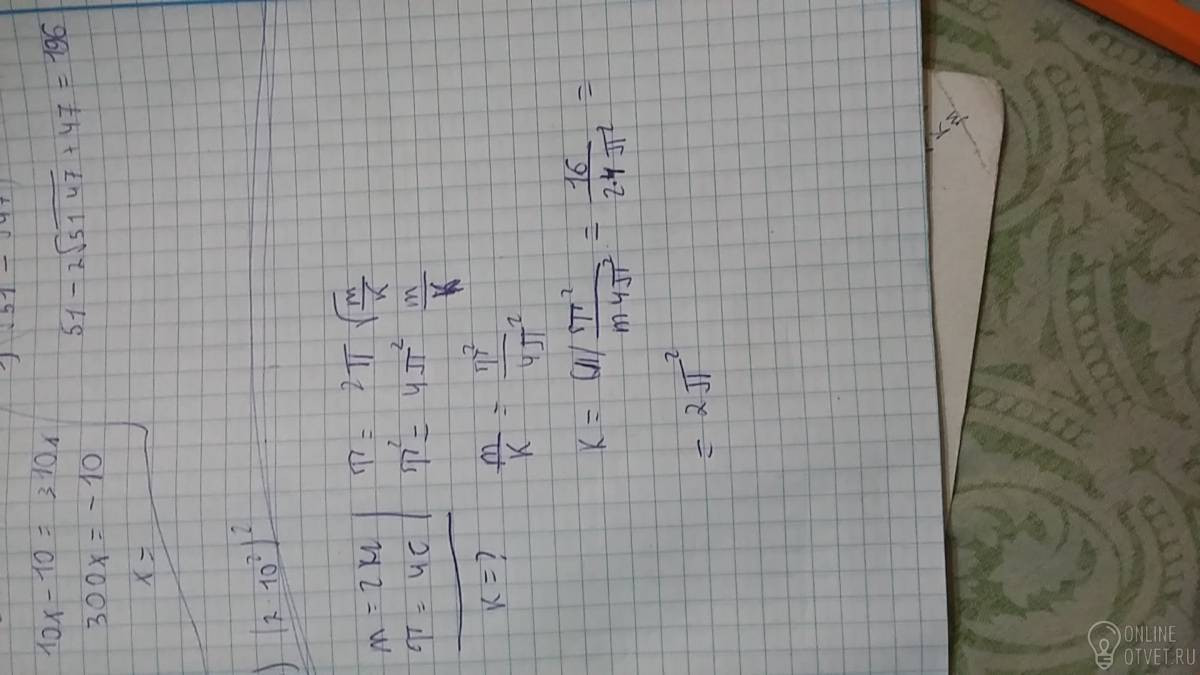 10x - 10 = 310x
300x = -10
x =
51 - 2√51 47 + 47 = 196
) (2 · 10²)²
m = 2 кг
T = 4 с
K = ?
T = 2π √m/K
T² = 4π² m/K
m/K = T²/4π²
K = T²/m4π² = 16/24π² =
= 2π²
ONLINE
OTVET.RU